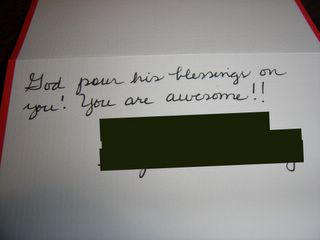 God pour his blessings on
you! You are awesome!!